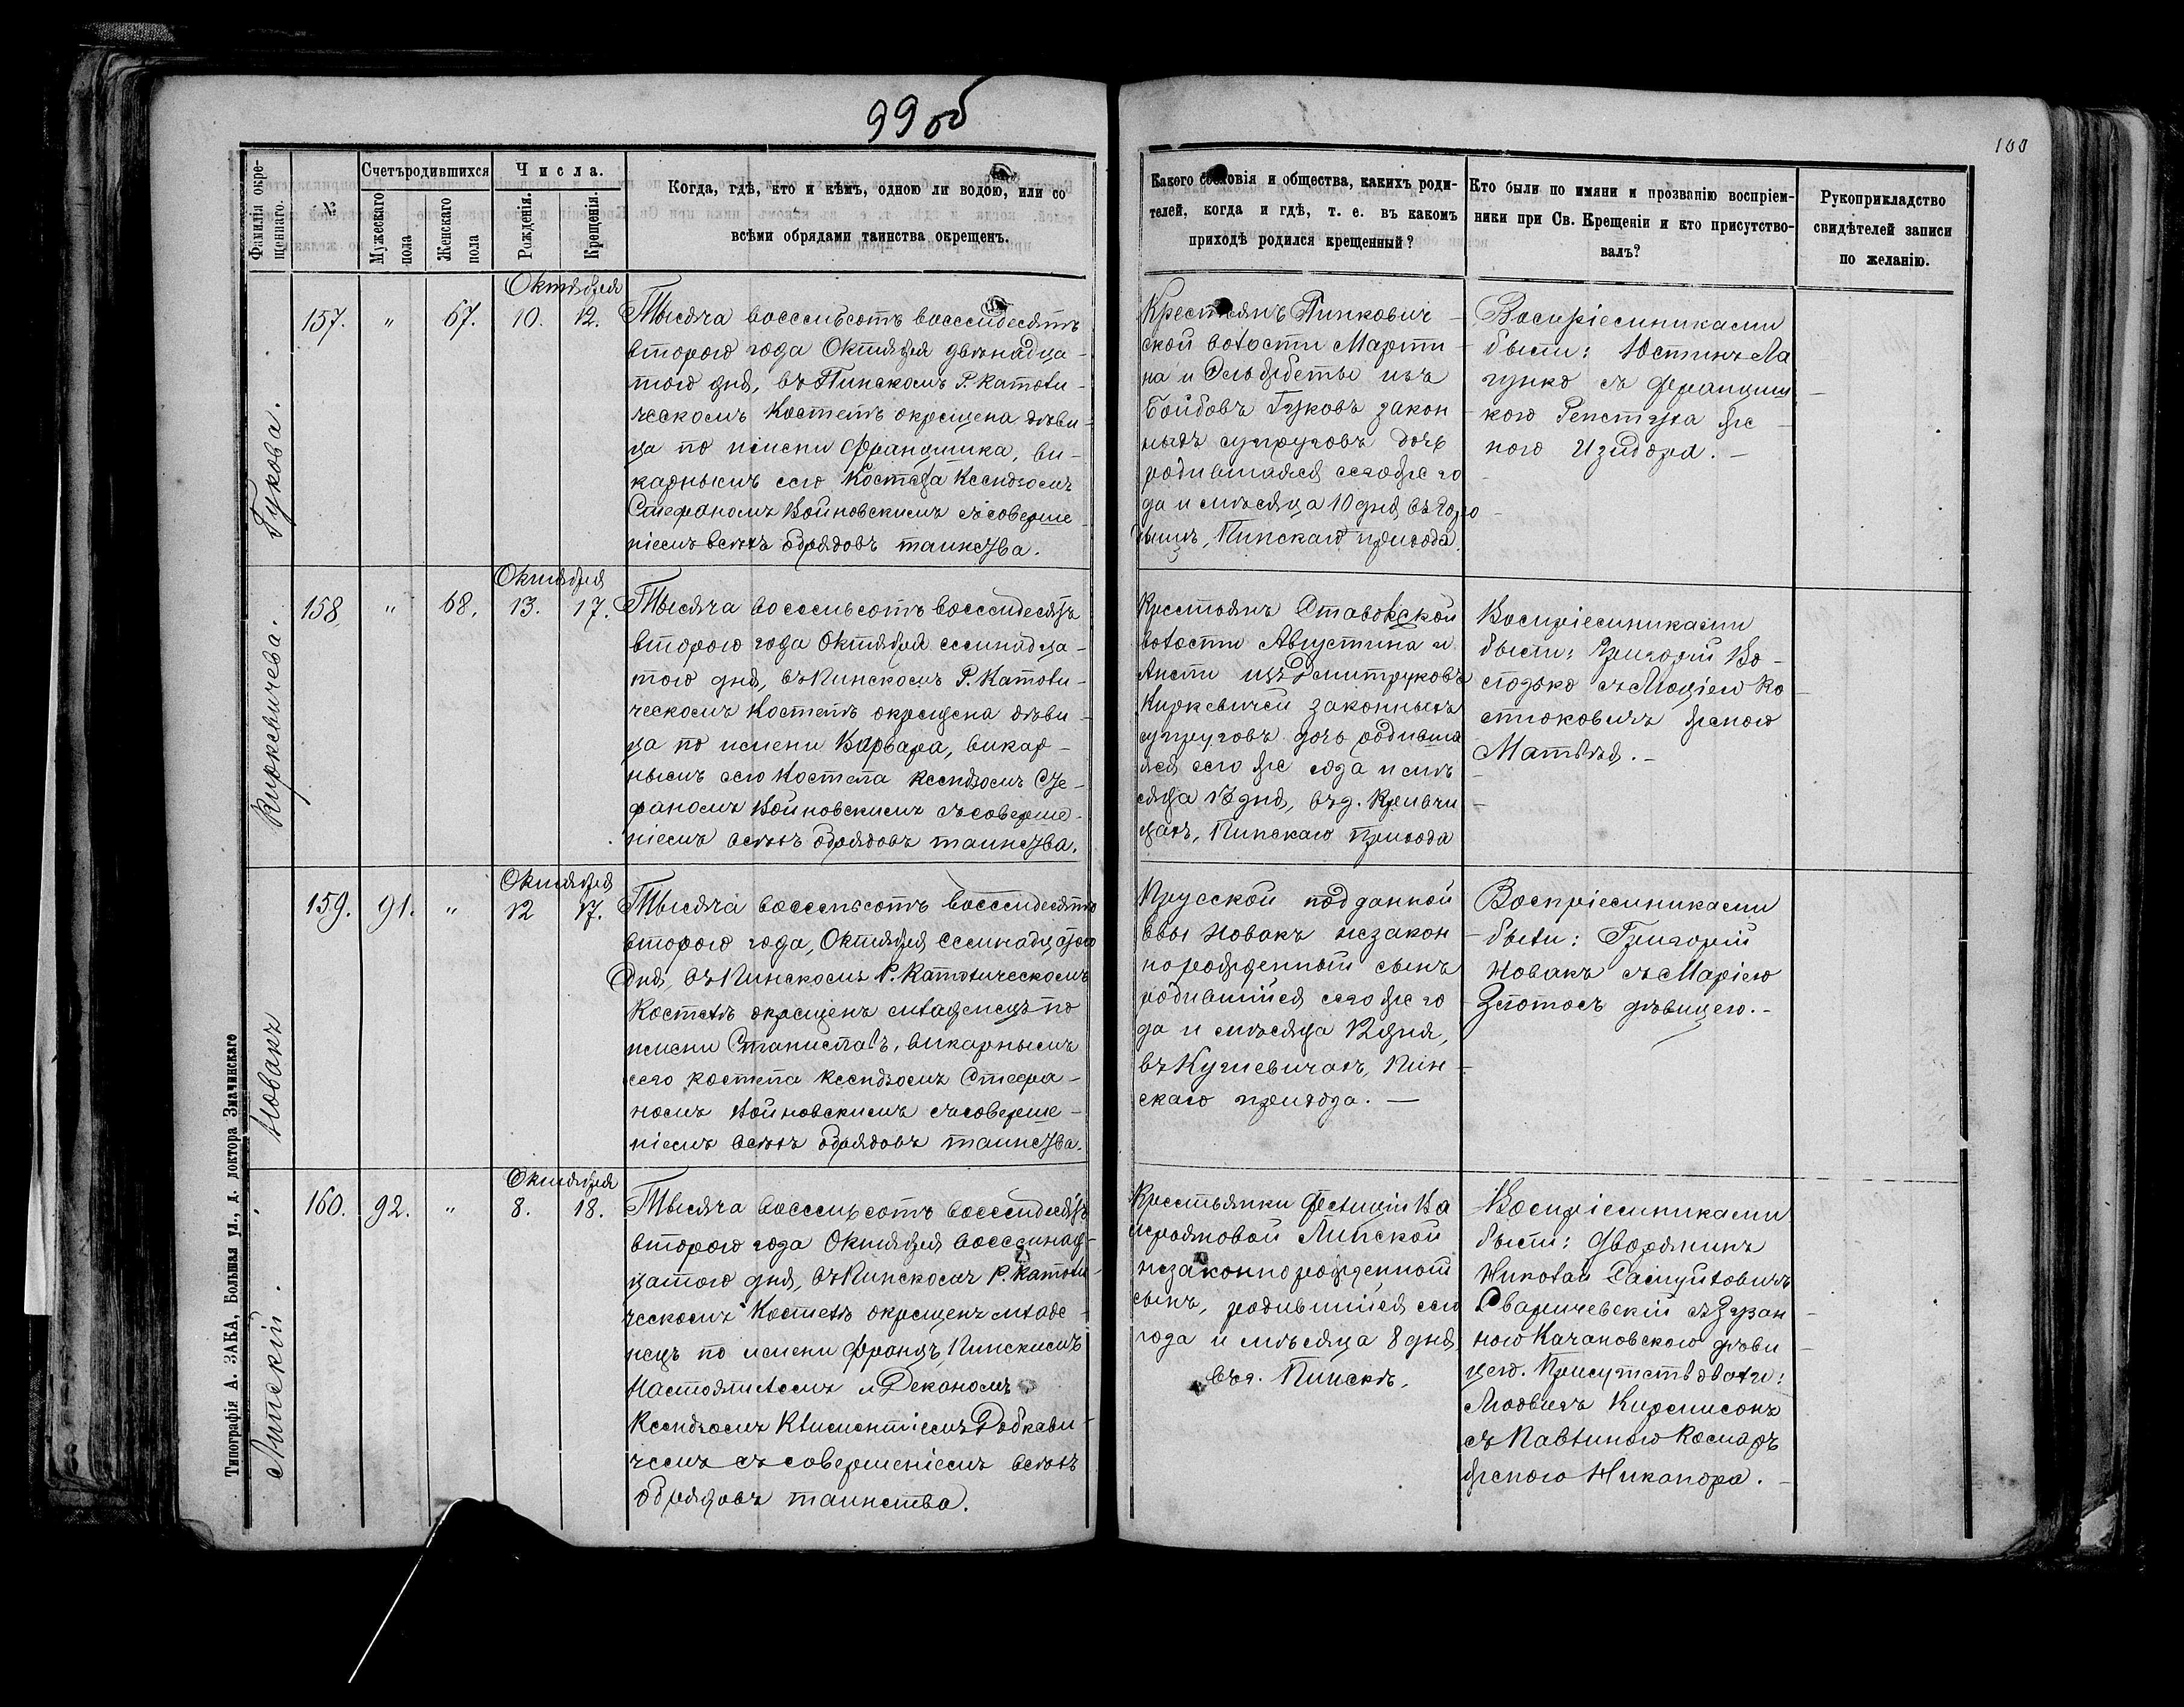 99 об
100
Фамилія окрещеннаго.
№
Счетъ родившихся
Мужескаго пола
Женскаго пола
Числа.
Рожденія.
Крещенія.
Когда, гдѣ, кто и кѣмъ, одною ли водою, или со
всѣми обрядами таинства окрещенъ.
Какого сословія и общества, какихъ роди-
телей, когда и гдѣ, т. е. въ какомъ
приходѣ родился крещенный?
Кто были по имяни и прозванію воспріем-
ники при Св. Крещеніи и кто присутство-
валъ?
Рукоприкладство
свидѣтелей записи
по желанію.
Гукова.
157. " 67.
Октября
10. 12.
Тысяча восемьсотъ восемьдесятъ
второго года Октября двѣнадца-
того дня, въ Пинскомъ Р. Католи-
ческомъ Костелѣ окрещена дѣви-
ца по имени Францишка, ви-
карнымъ сего Костела Ксендзомъ
Стефаномъ Войновскимъ съ соверше-
ніемъ всѣхъ обрядовъ таинства.
Крестьянъ Пинкович-
ской волости Марти-
на и Эльжбеты изъ
Гуковъ закон-
ныхъ супруговъ дочь
родившаяся сего же го-
да и мѣсяца 10 дня въ
Пинскаго прихода.
Воспріемниками
были: Юстинъ Ла
гунко съ Францишкою
же
ною Изидора. —
Киркевичева.
158 " 68.
Октября
13. 17.
Тысяча восемьсотъ восемьдесятъ
второго года Октября семнадца-
того дня, въ Пинскомъ Р. Католи-
ческомъ Костелѣ окрещена дѣви-
ца по имени Варвара, викар-
нымъ сего Костела Ксендзомъ Сте-
фаномъ Войновскимъ съ соверше-
ніемъ всѣхъ обрядовъ таинства.
Крестьянъ Ставокской
волости Августина и
изъ Дмитруковъ
Киркевичей законныхъ
супруговъ дочь родивша
яся сего же года и мѣ-
сяца 13 дня, въ д. Кривчи
цахъ, Пинскаго прихода
Воспріемниками
были: Григорій Во-
лодько съ Ко
стюковичъ женою
Матвѣя. —
Новакъ
159. 91. "
Октября
12 17.
Тысяча восемьсотъ восемьдесятъ
второго года, Октября семнадцатого
дня, въ Пинскомъ Р. Католическомъ
Костелѣ окрещенъ младенецъ по
имени Станиславъ, викарнымъ
сего костела Ксендзомъ Стефа-
номъ Войновскимъ съ соверше-
ніемъ всѣхъ обрядовъ таинства.
Прусской подданной
Евы Новакъ незакон-
норожденный сынъ
родившійся сего же го-
да и мѣсяца 12 дня,
въ Купневичахъ, Пин-
скаго прихода. —
Воспріемниками
были: Григорій
Новакъ съ Маріею
Злотосъ дѣвицею. —
Липскій.
160. 92. "
Октября
8. 18.
Тысяча восемьсотъ восемьдесятъ
второго года Октября восемнад-
цатого дня, въ Пинскомъ Р. Католи-
ческомъ Костелѣ окрещенъ младе-
нецъ по имени Францъ, Пинскимъ
Настоятелемъ и Деканомъ
Ксендзомъ Климентіемъ Рабкеви-
чемъ съ совершеніемъ всѣхъ
обрядовъ таинства.
Крестьянки Фелиціи Ва
Липской
незаконнорожденный
сынъ, родившійся сего
года и мѣсяца 8 дня,
въ г. Пинскѣ.
Воспріемниками
были: Дворянинъ
Николай
Сваричевскій съ
ною Качановскою дѣви
цею. Присутствовали:
Людвигъ
съ Павлиною
женою Никанора. —
Типографія А. ЗАКА, Большая ул., д. доктора Значинскаго